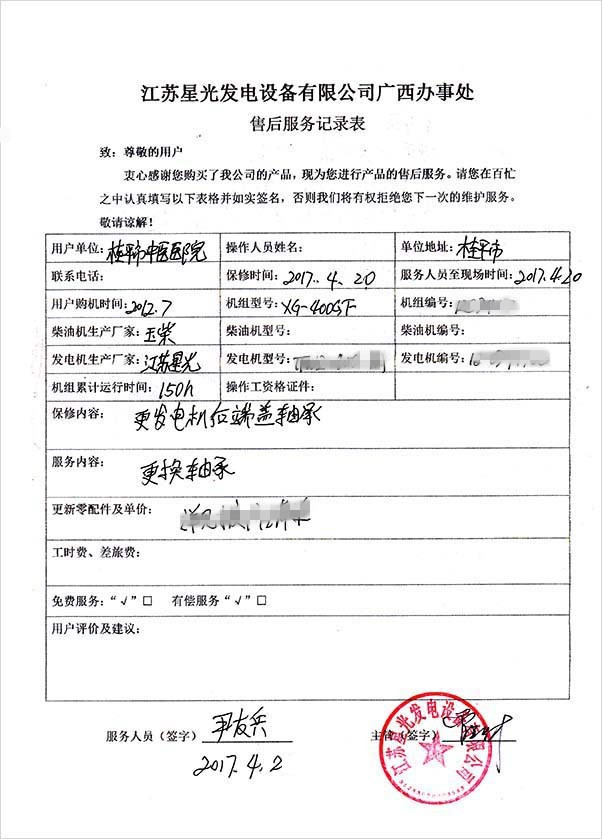 江苏星光发电设备有限公司广西办事处
售后服务记录表
致：尊敬的用户
衷心感谢您购买了我公司的产品，现为您进行产品的售后服务。请您在百忙
之中认真填写以下表格并如实签名，否则我们将有权拒绝您下一次的维护服务。
敬请谅解！
用户单位：桂平市中医医院 操作人员姓名： 单位地址：桂平市
联系电话： 保修时间：2017.4.20 服务人员至现场时间：2017.4.20
用户购机时间：2012.7 机组型号：XG-400GF 机组编号：
柴油机生产厂家：玉柴 柴油机型号： 柴油机编号：
发电机生产厂家：江苏星光 发电机型号： 发电机编号：
机组累计运行时间：150h 操作工资格证件：
保修内容：更发电机后端盖轴承
服务内容：更换轴承
更新零配件及单价：
工时费、差旅费：
免费服务：“√”□ 有偿服务“√”□
用户评价及建议：
服务人员（签字）尹友兵 主管（签字）
2017.4.2
江苏星光发电设备有限公司